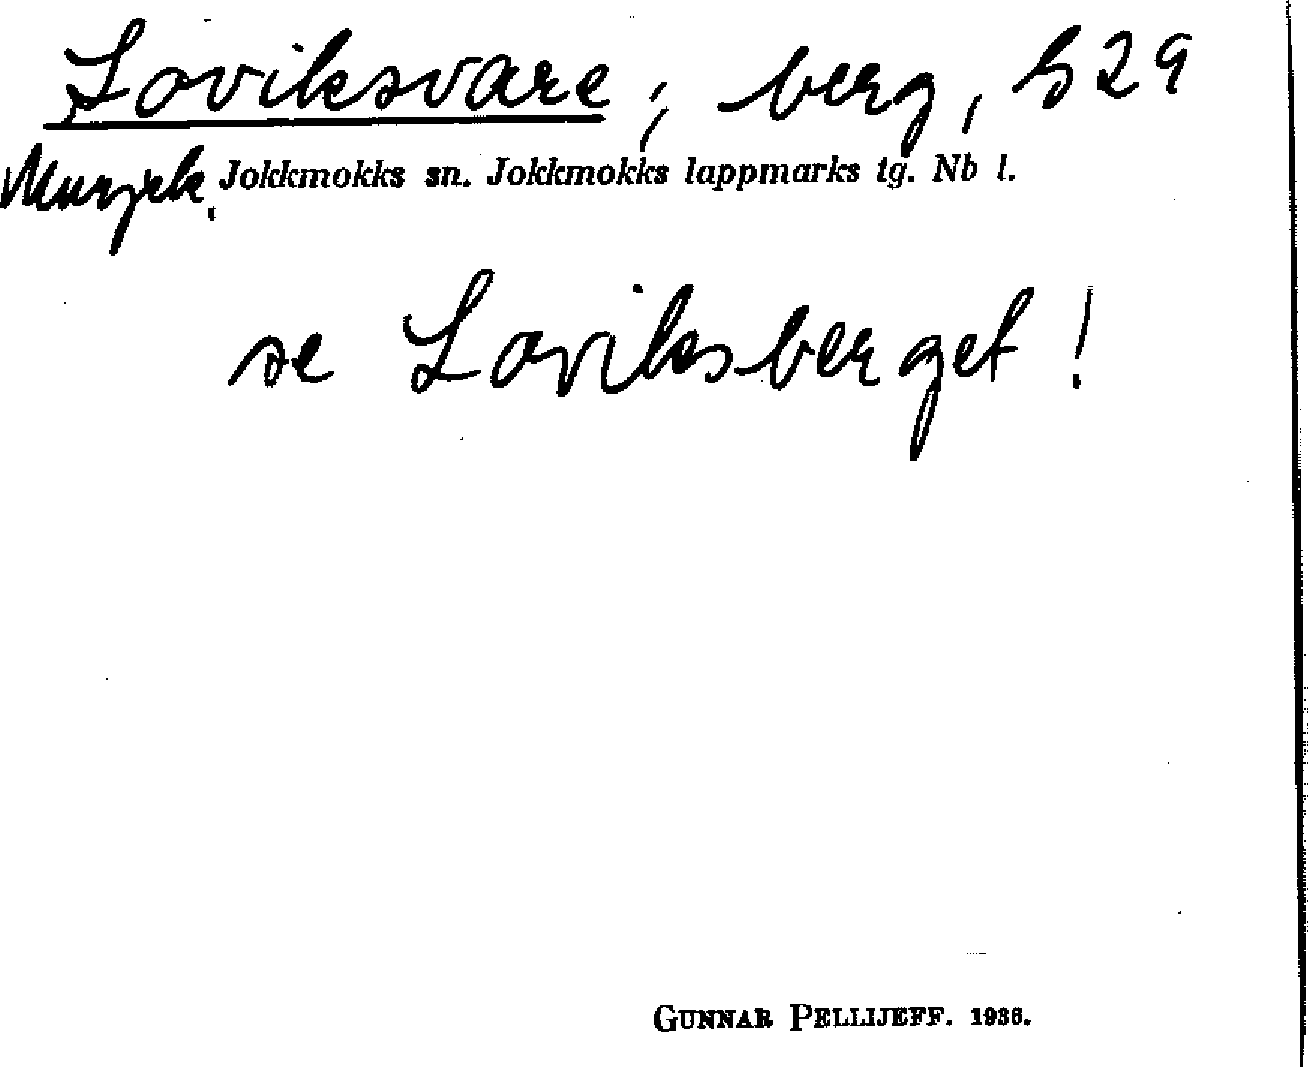 Loviksvare, berg, S29
Murjek. Jokkmokks sn. Jokkmokks lappmarks tg. Nb l.
se Loviksberget!
GUNNAR PELLIJEFF. 1936.